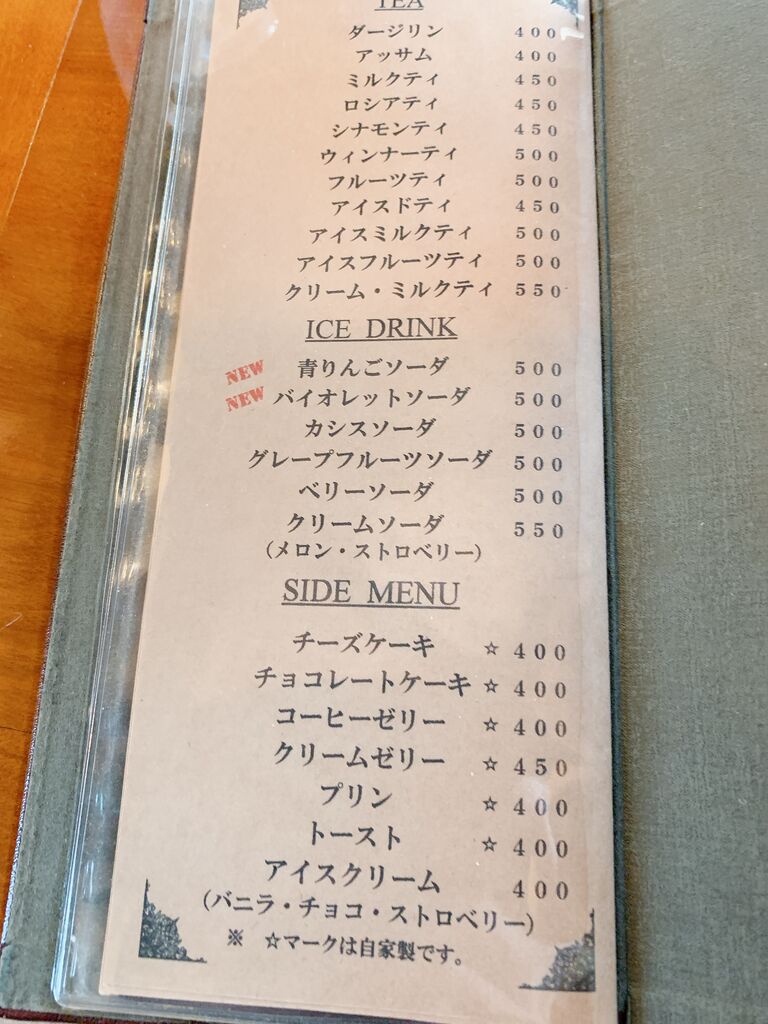 TEA
ダージリン 400
アッサム 400
ミルクティ 450
ロシアティ 450
シナモンティ 450
ウィンナーティ 500
フルーツティ 500
アイスドティ 450
アイスミルクティ 500
アイスフルーツティ 500
クリーム・ミルクティ 550
ICE DRINK
NEW 青りんごソーダ 500
NEW バイオレットソーダ 500
カシスソーダ 500
グレープフルーツソーダ 500
ベリーソーダ 500
クリームソーダ 550
(メロン・ストロベリー)
SIDE MENU
チーズケーキ ☆400
チョコレートケーキ ☆400
コーヒーゼリー ☆400
クリームゼリー ☆450
プリン ☆400
トースト ☆400
アイスクリーム 400
(バニラ・チョコ・ストロベリー)
※ ☆マークは自家製です。